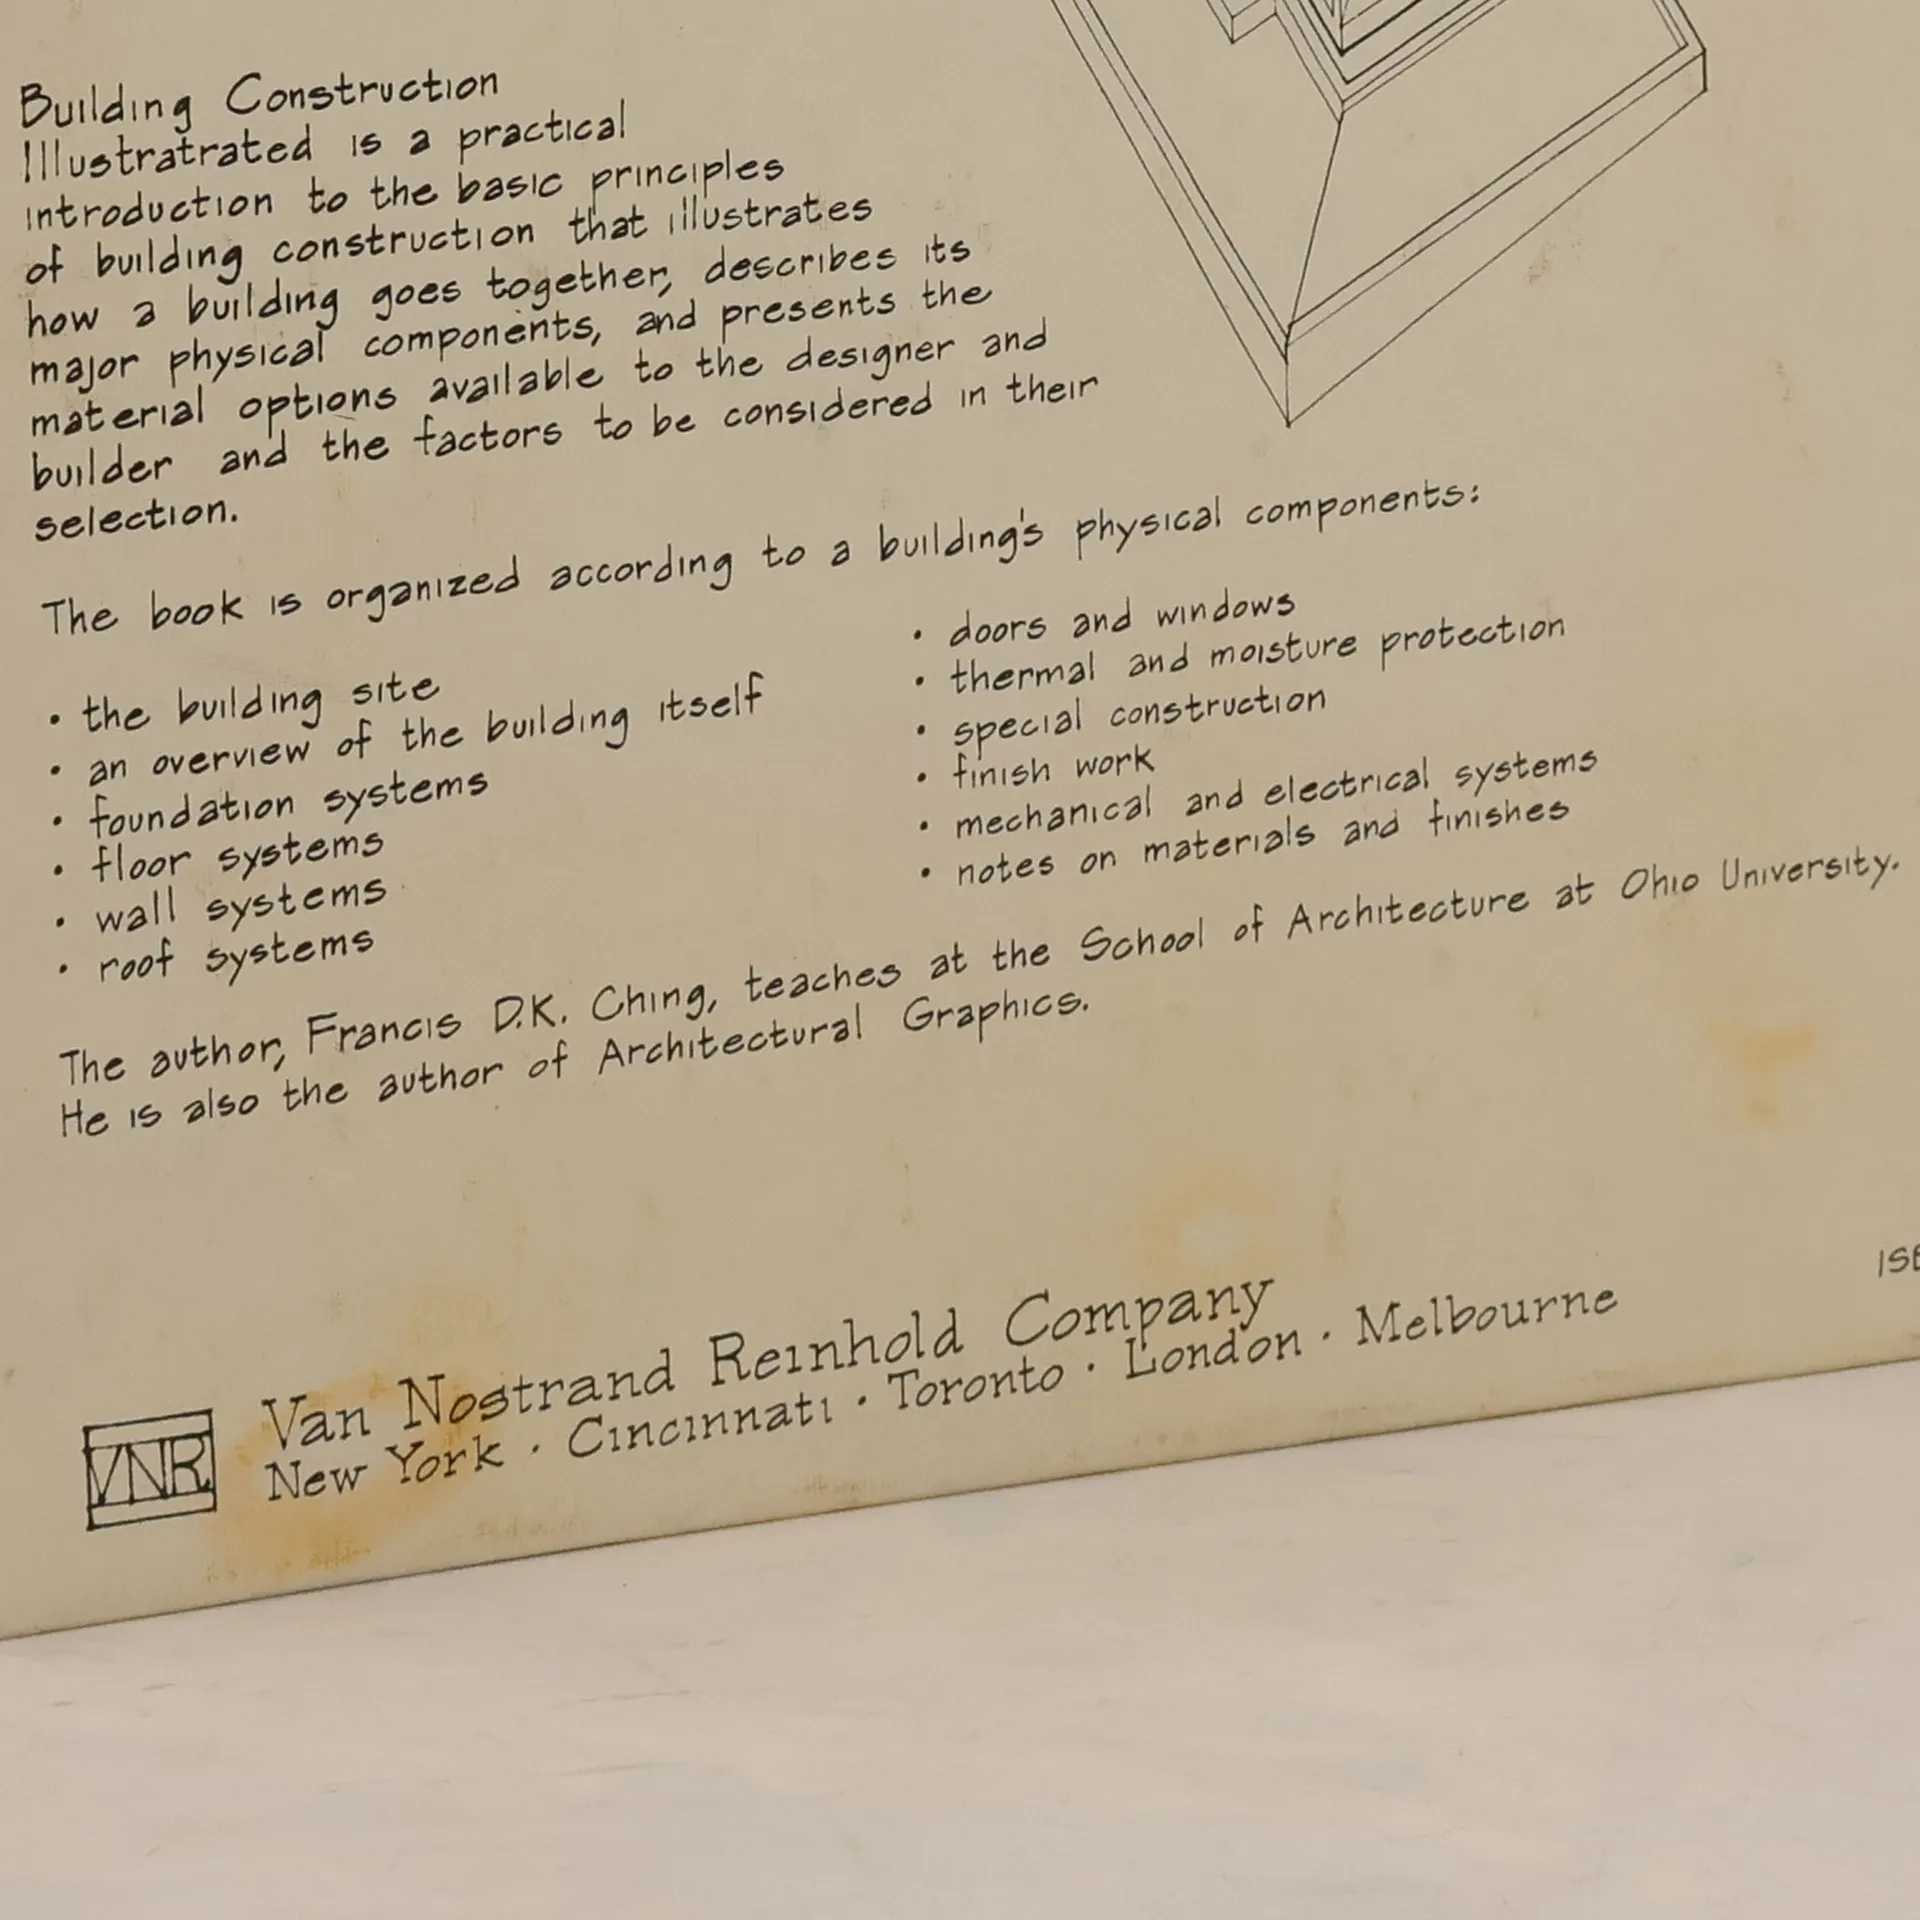 Building Construction
Illustratrated is a practical
introduction to the basic principles
of building construction that illustrates
how a building goes together, describes its
major physical components, and presents the
material options available to the designer and
builder and the factors to be considered in their
selection.
The book is organized according to a building's physical components:
• the building site
• an overview of the building itself
• foundation systems
• floor systems
• wall systems
• roof systems
• doors and windows
• thermal and moisture protection
• special construction
• finish work
• mechanical and electrical systems
• notes on materials and finishes
The author, Francis D.K. Ching, teaches at the School of Architecture at Ohio University.
He is also the author of Architectural Graphics.
VNR
Van Nostrand Reinhold Company
New York · Cincinnati · Toronto · London · Melbourne